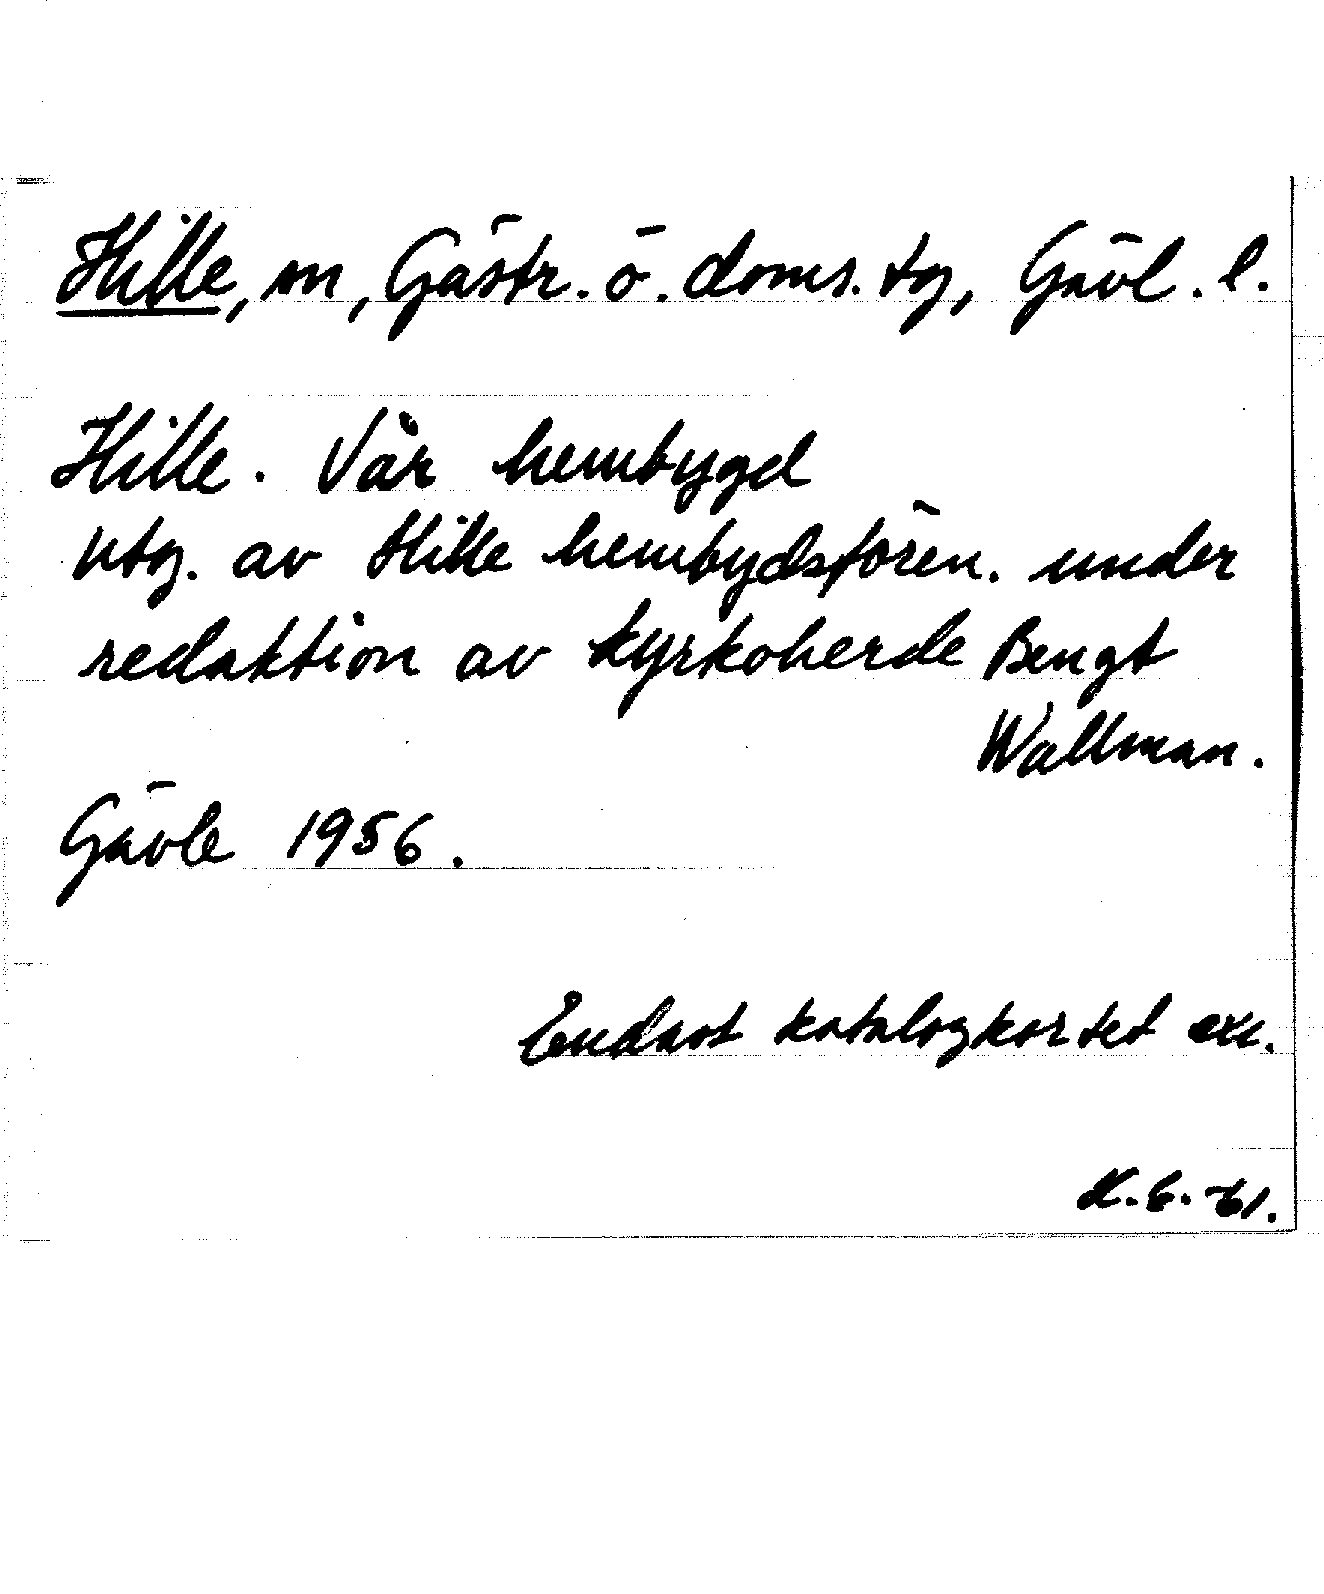 Hille, sn, Gästr. ö. doms. tg, Gävl. l.
Hille. Vår hembygd
Utg. av Hille hembydsfören. under
redaktion av kyrkoherde Bengt
Wallman.
Gävle 1956.
Endast katalogkortet exc.
6. -61.